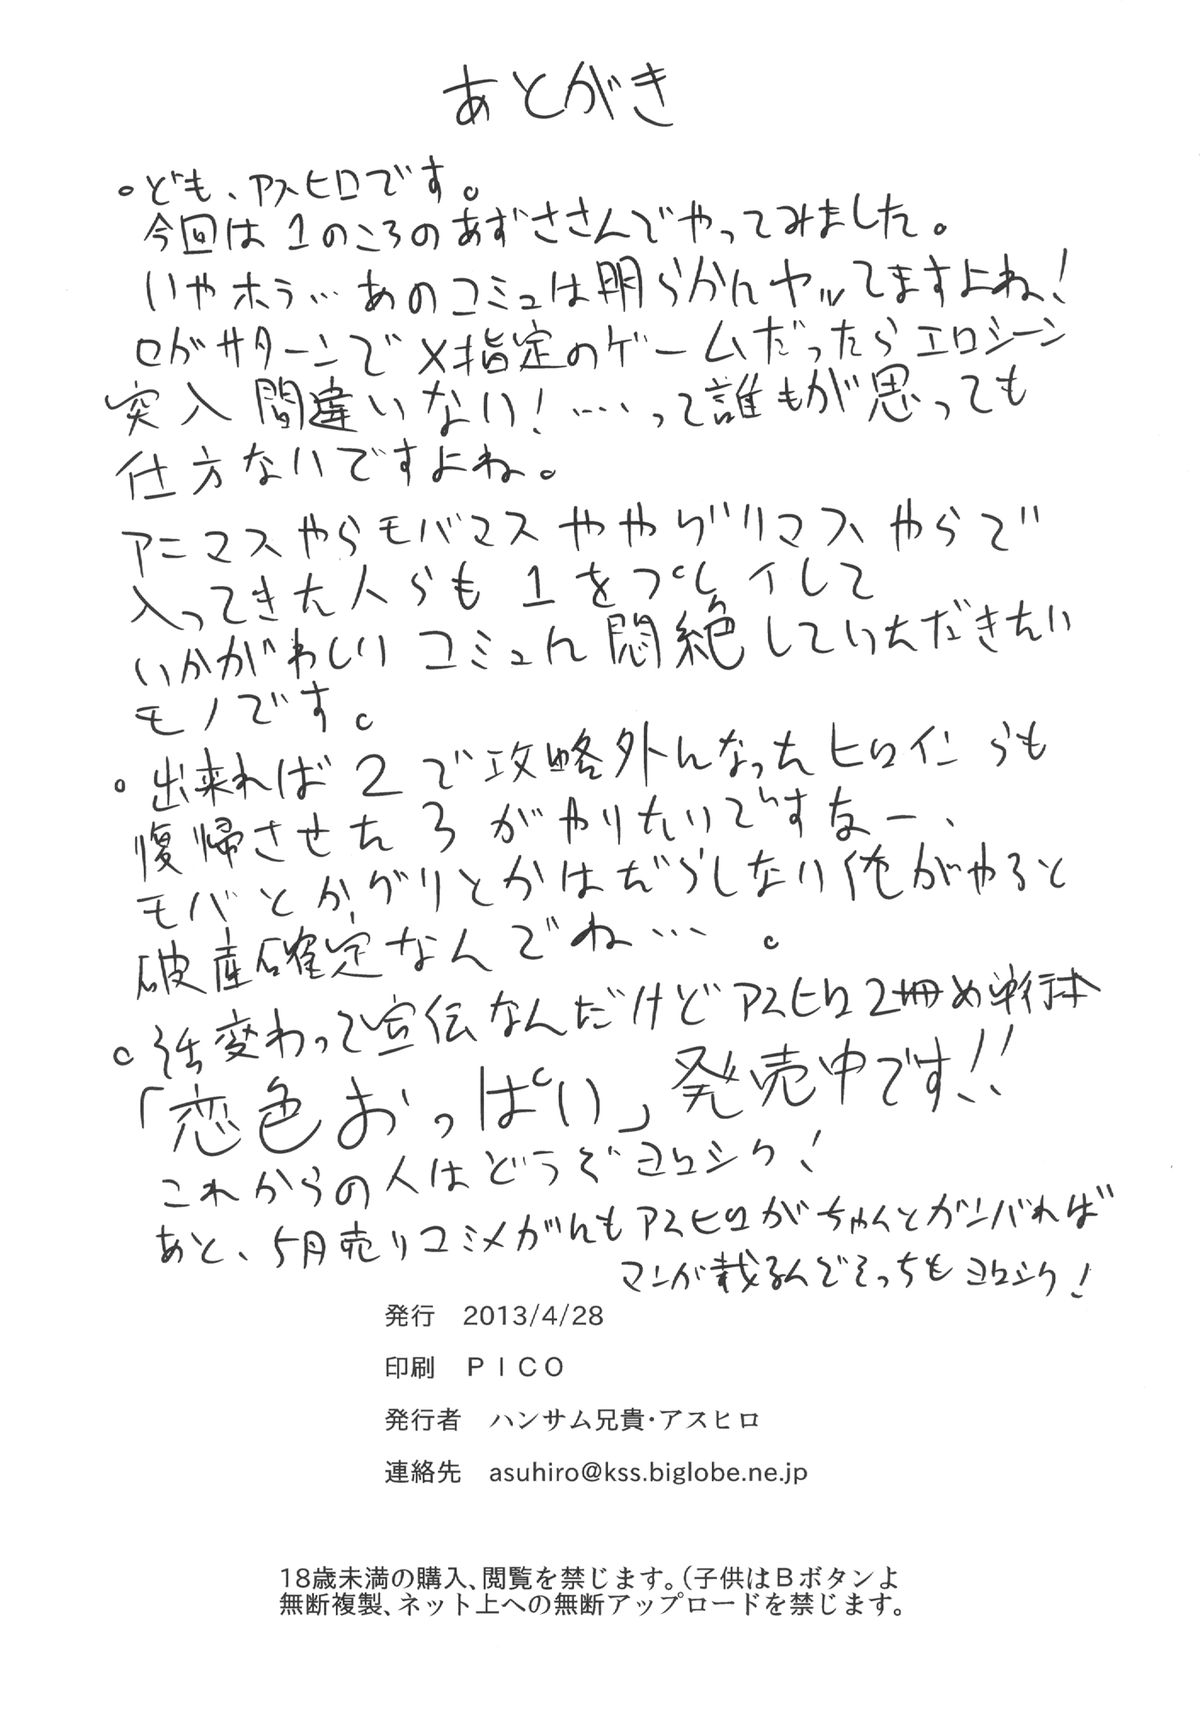 あとがき
。ども、アスヒロです。
今回は1のころのあずささんでやってみました。
いやホラ…あのコミュは明らかにヤッてますよね!
セガサターンでX指定のゲームだったらエロシーン
突入間違いない!……って誰もが思っても
仕方ないですよね。
アニマスやらモバマスややグリマスやらで
入ってきた人らも1をプレイして
いかがわしいコミュに悶絶していただきたい
モノです。
。出来れば2で攻略外になったヒロインらも
復帰させた3がやりたいですなー、
モバとかグリとかはだらしない俺がやると
破産確定なんでね…。
。話変わって宣伝なんだけどアスヒロ2冊め単行本
「恋色おっぱい」発売中です!!
これからの人はどうぞヨロシク!
あと、5月売りコミメガにもアスヒロがちゃんとガンバれば
マンが載るんでそっちもヨロシク!
発行 2013/4/28
印刷 PICO
発行者 ハンサム兄貴・アスヒロ
連絡先 asuhiro@kss.biglobe.ne.jp
18歳未満の購入、閲覧を禁じます。(子供はBボタンよ
無断複製、ネット上への無断アップロードを禁じます。